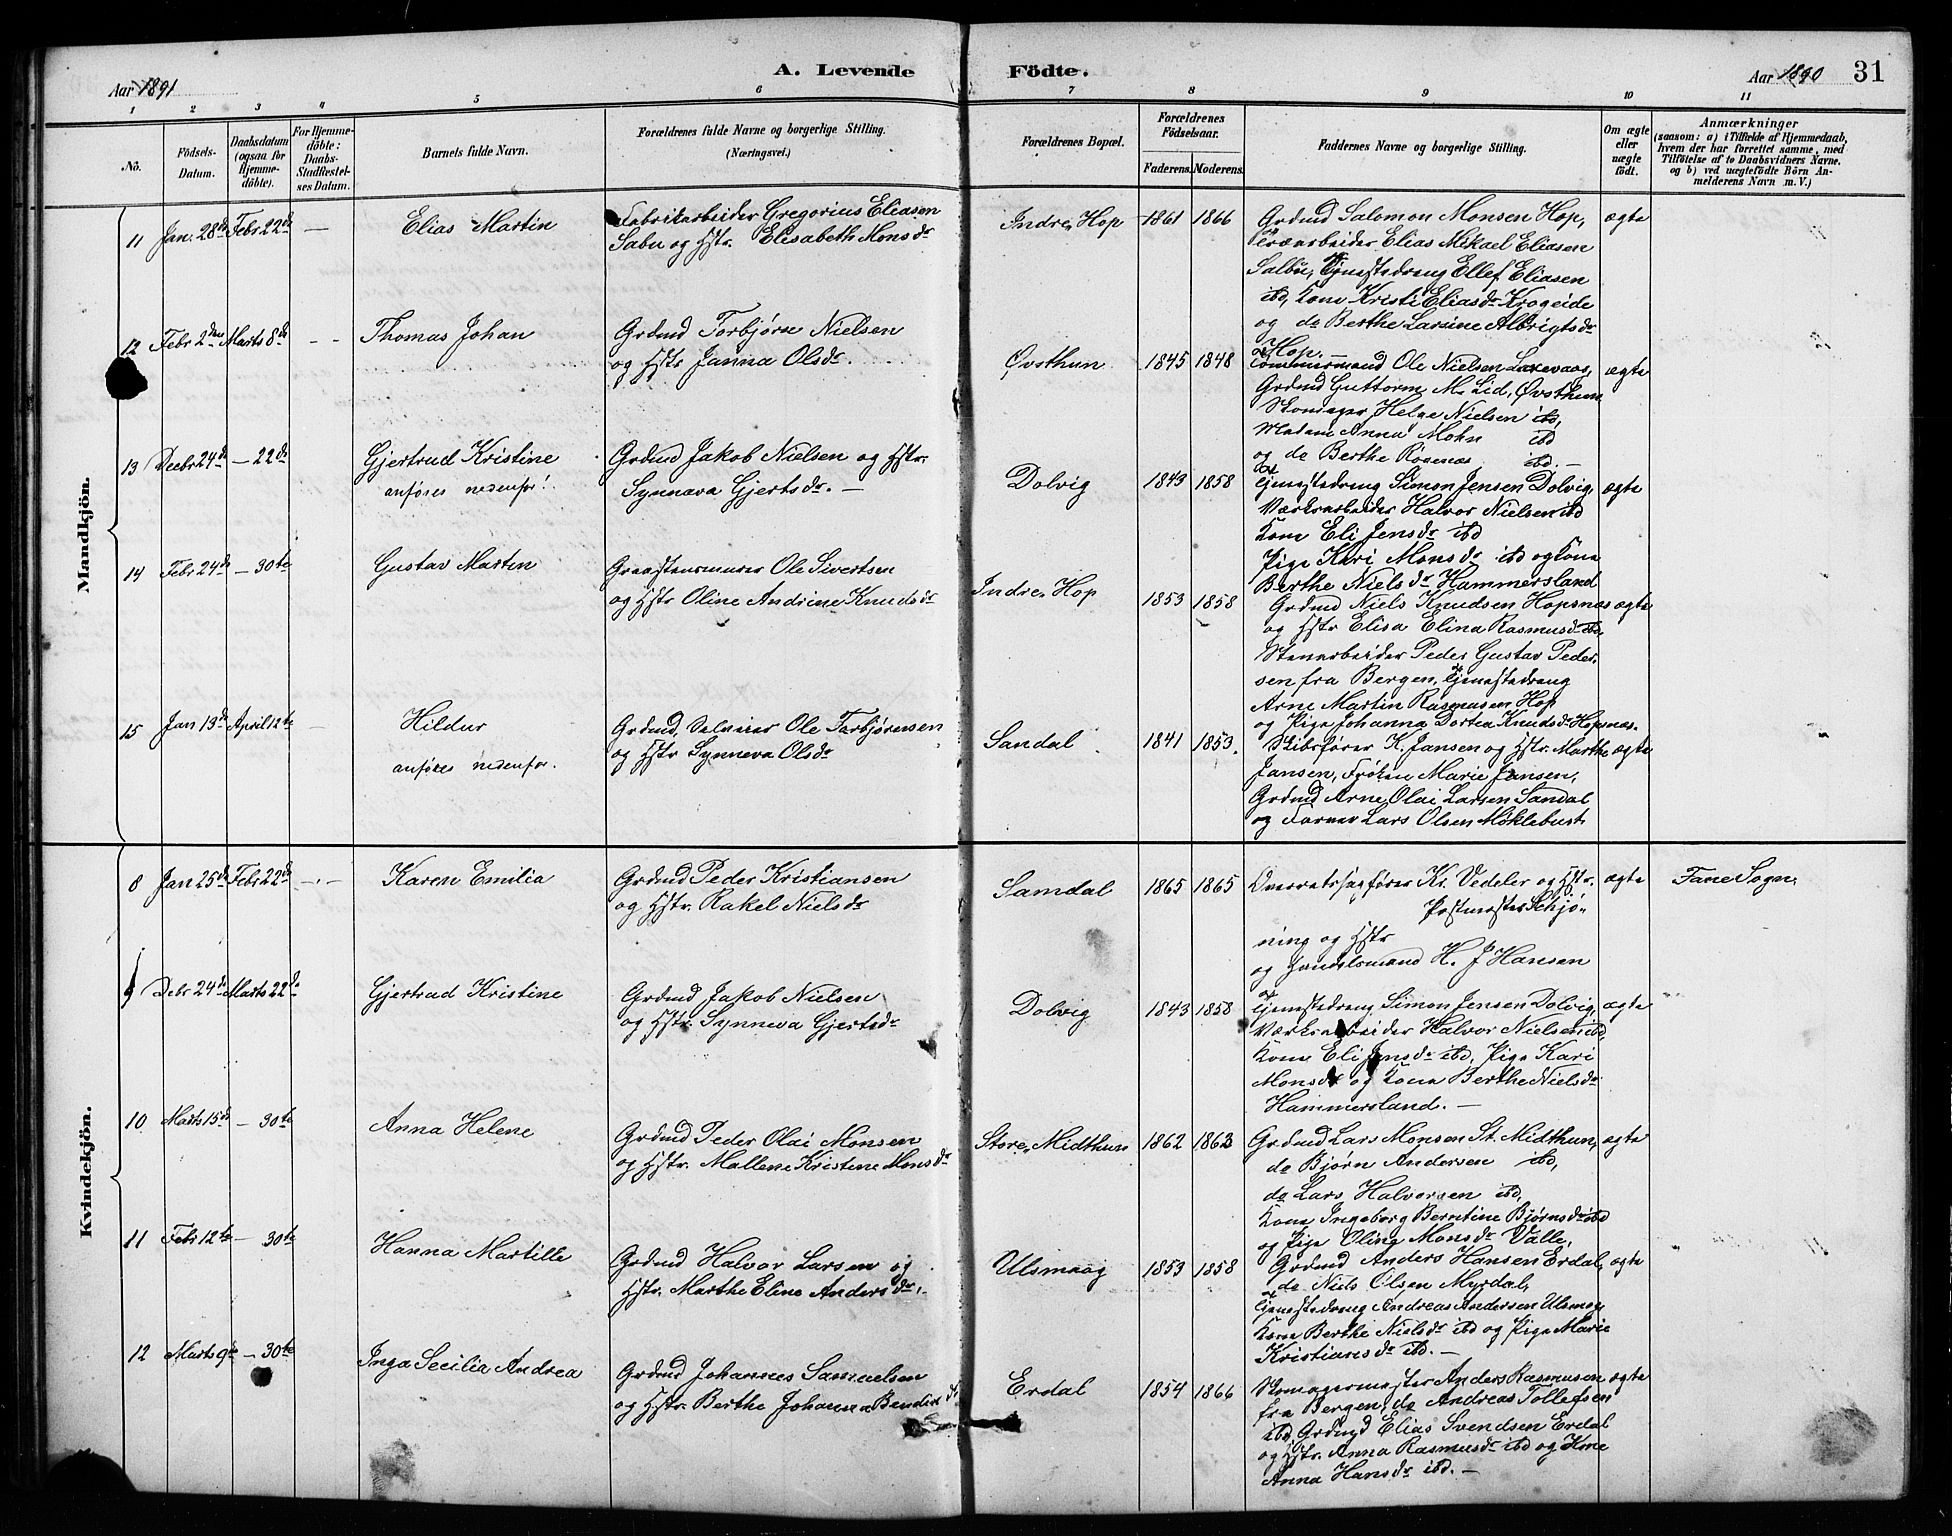 Aar 1891
A. Levende Födte.
Aar 1890
31
1 2 3 4 5 6 7 8 9 10 11
No.
Födsels-Datum.
Daabsdatum (ogsaa for Hjemme-döbte).
For Hjemme-döbte: Daabs-Stadfæstel-ses Datum.
Barnets fulde Navn.
Forældrenes fulde Navne og borgerlige Stilling. (Næringsvei.)
Forældrenes Bopæl.
Forældrenes Födselsaar.
Faderens. Moderens.
Faddernes Navne og borgerlige Stilling.
Om ægte eller uægte födt.
Anmærkninger
(saasom: a) i Tilfælde af Hjemmedaab, hvem der har forrettet samme, med Tilföielse af to Daabsvidners Navne. og b) ved uægtefödte Börn An-melderens Navn m. V.)
Mandkjön.
11 Jan. 28de Febr 22de —
Elias Martin
Fabrikarbeider Gregorius Eliasen
Salbu og Hstr. Elisabeth Monsdr
Indre Hop 1861 1866
Grdmd Salomon Monsen Hop,
Træarbeider Elias Mikael Eliasen
Salbu, Tjenestedreng Ellef Eliasen
ibd, Kone Kristi Eliasdr Krogeide
og do Berthe Larsine Albrigtsdr
Hop. —
ægte
12 Febr 2den Marts 8de - -
Thomas Johan
Grdmd Torbjørn Nielsen
og Hstr Janna Olsdr.
Øvsthun 1845 1848
Tømmermand Ole Nielsen Laxevaag,
Grdmd Guttorm M. Lid, Øvsthun
Skomager Helge Nielsen ibd,
Madam Anna Mohn ibd
og do Berthe Rosenæs ibd. —
ægte
13 Decbr 24de — 22de
Gjertrud Kristine
anføres nedenfor!
Grdmd Jakob Nielsen og Hstr.
Synneva Gjertsdr. —
Dolvig 1843 1858
Tjenestedreng Simon Jensen Dolvig,
Værksarbeider Halvor Nielsen ibd
Kone Eli Jensdr ibd
Pige Kari Monsdr ibd og Kone
Berthe Nielsdr Hammersland
ægte
14 Febr 24de — 30te
Gustav Martin
Graastensmurer Ole Sivertsen
og Hstr Oline Andrine Knudsdr
Indre Hop 1853 1858
Grdmd Niels Knudsen Hopsnæs
og Hstr Elisa Elina Rasmusdr ibd,
Stenarbeider Peder Gustav Peder-
sen fra Bergen, Tjenestedreng
Arne Martin Rasmusen Hop
og Pige Johanna Dortea Knudsdr Hopsnæs.
ægte
15 Jan 13de April 12te -
Hildur
anføres nedenfor.
Grdmd, Selveier Ole Torbjørnsen
og Hstr Synneva Olsdr
Sandal 1841 1853.
Skibsfører K. Jansen og Hstr. Marthe
Jansen, Frøken Marie Jansen,
Grdmd Arne Olai Larsen Sandal
og Farver Lars Olsen Møklebust.
ægte
Kvindekjön.
8 Jan 25de Febr 22de - . -
Karen Emilia
Grdmd Peder Kristiansen
og Hstr. Rakel Nielsdr
Samdal 1865 1865
Overretssagfører Kr. Vedeler og Hstr.
Postmester Schjø-
ning og Hstr
og Handelsmand H. J Hansen
ægte
Fane Sogn.
9 Debr 24de Marts 22de
Gjertrud Kristine
Grdmd Jakob Nielsen
og Hstr. Synneva Gjertsdr
Dolvig 1843 1858
Tjenestedreng Simon Jensen Dolvig,
Værksarbeider Halvor Nielsen ibd,
Kone Eli Jensdr ibd, Pige Kari
Monsdr og Kone Berthe Nielsdr
Hammersland. —
ægte
10 Marts 15de — 30te
Anna Helene
Grdmd Peder Olai Monsen
og Hstr. Mallene Kristine Monsdr
Store Midthun 1862 1863
Grdmd Lars Monsen St. Midthun,
do Bjørn Andersen ibd,
do Lars Halvorsen ibd,
Kone Ingeborg Berntine Bjørnsdr ibd
og Pige Oline Monsdr Valle,
ægte
11 Febr 12te — 30te
Hanna Martille
Grdmd Halvor Larsen og
Hstr. Marthe Eline Andersdr.
Ulsmaag 1853 1858
Grdmd Anders Hansen Erdal,
do Niels Olsen Myrdal,
Tjenestedreng Andreas Andersen Ulsmog
Kone Berthe Nielsdr ibd og Pige Marie
Kristiansdr ibd. —
ægte
12 Marts 9de — 30te
Inga Secilia Andrea
Grdmd Johannes Samuelsen
og Hstr. Berthe Johanna Bendixdr
Erdal 1854 1866
Skomagermester Anders Rasmusen
fra Bergen, do Andreas Tollefsen
ibd Grdmd Elias Svendsen Erdal
og Hstr. Anna Rasmusdr ibd og Kone
Anna Hansdr ibd. —
ægte